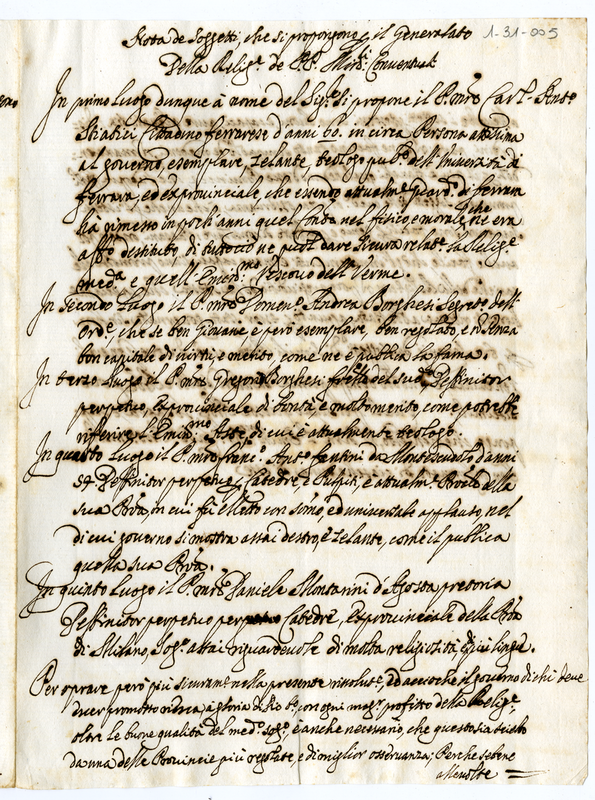 Nota de Soggetti, che si propongono p il Generalato 1-31-005
Della Relig.e de PP. Min.ri Conventuali
In primo luogo dunque à nome del Sig.re si propone il P. mro Carl. Ant.o
Cittadino ferrarese d'anni 60. in circa Persona attissima
al governo, esemplare, zelante, teologo pub.co dell'Università di
ferrara, ed exprovinciale, che essendo attualm.e guard.o di ferrara
hà rimesso in pochi anni quel Conv.to nel fisico, e morale, che ne era
affo destituto, di tuttociò ne puol dare sicura relat.e la Relig.e
med.a e quell'Emin.mo Vescovo dell'Verme.
In secondo luogo il P. mro Domen.o Andrea Borghesi Segret.o dell'
Ord.e, che se ben Giovane, è però esemplare, ben regolato, e nò senza
bon capitale di virtù, e merito, come ne è publica la fama.
In terzo luogo il P. mro Gregorio Borghesi frello del sud.o Deffinitor
perpetuo, Exprovinciale di bontà, e molto merito, come potrebbe
riferire l'Emin.mo Aste, di cui è attualmente teologo.
In quarto luogo il P. mro Franc.o Ant.o fantini da d'anni
54. Deffinitor perpetuo, Catedre, e Pulpiti, è attualm.e Prov.le della
sua Prov.a, in cui fù eletto con sòmo, ed universale applauso, nel
di cui governo si mostra assai destro, e zelante, come il publica
quella sua Prov.a.
In quinto luogo il P. mro Daniele Montanini d'Agosta pretoria
Deffinitor perpetuo Catedre, Exprovinciale della Prov.a
di Milano, Sog.o assai riguardevole di molta religiosità, e di più lingue.
Per oprare però più sicuram.e nella presente rissolut.e, ed acciochè il governo di chi deve
esser promosso riesca, à gloria di Dio B.o con ogni mag.r profitto della Relig.e
oltre le buone qualità del med.o sog.o, è anche necessario, che questo sia scielto
da una delle Provincie più regolate, e di miglior osservanza; Perche sebene
alle volte